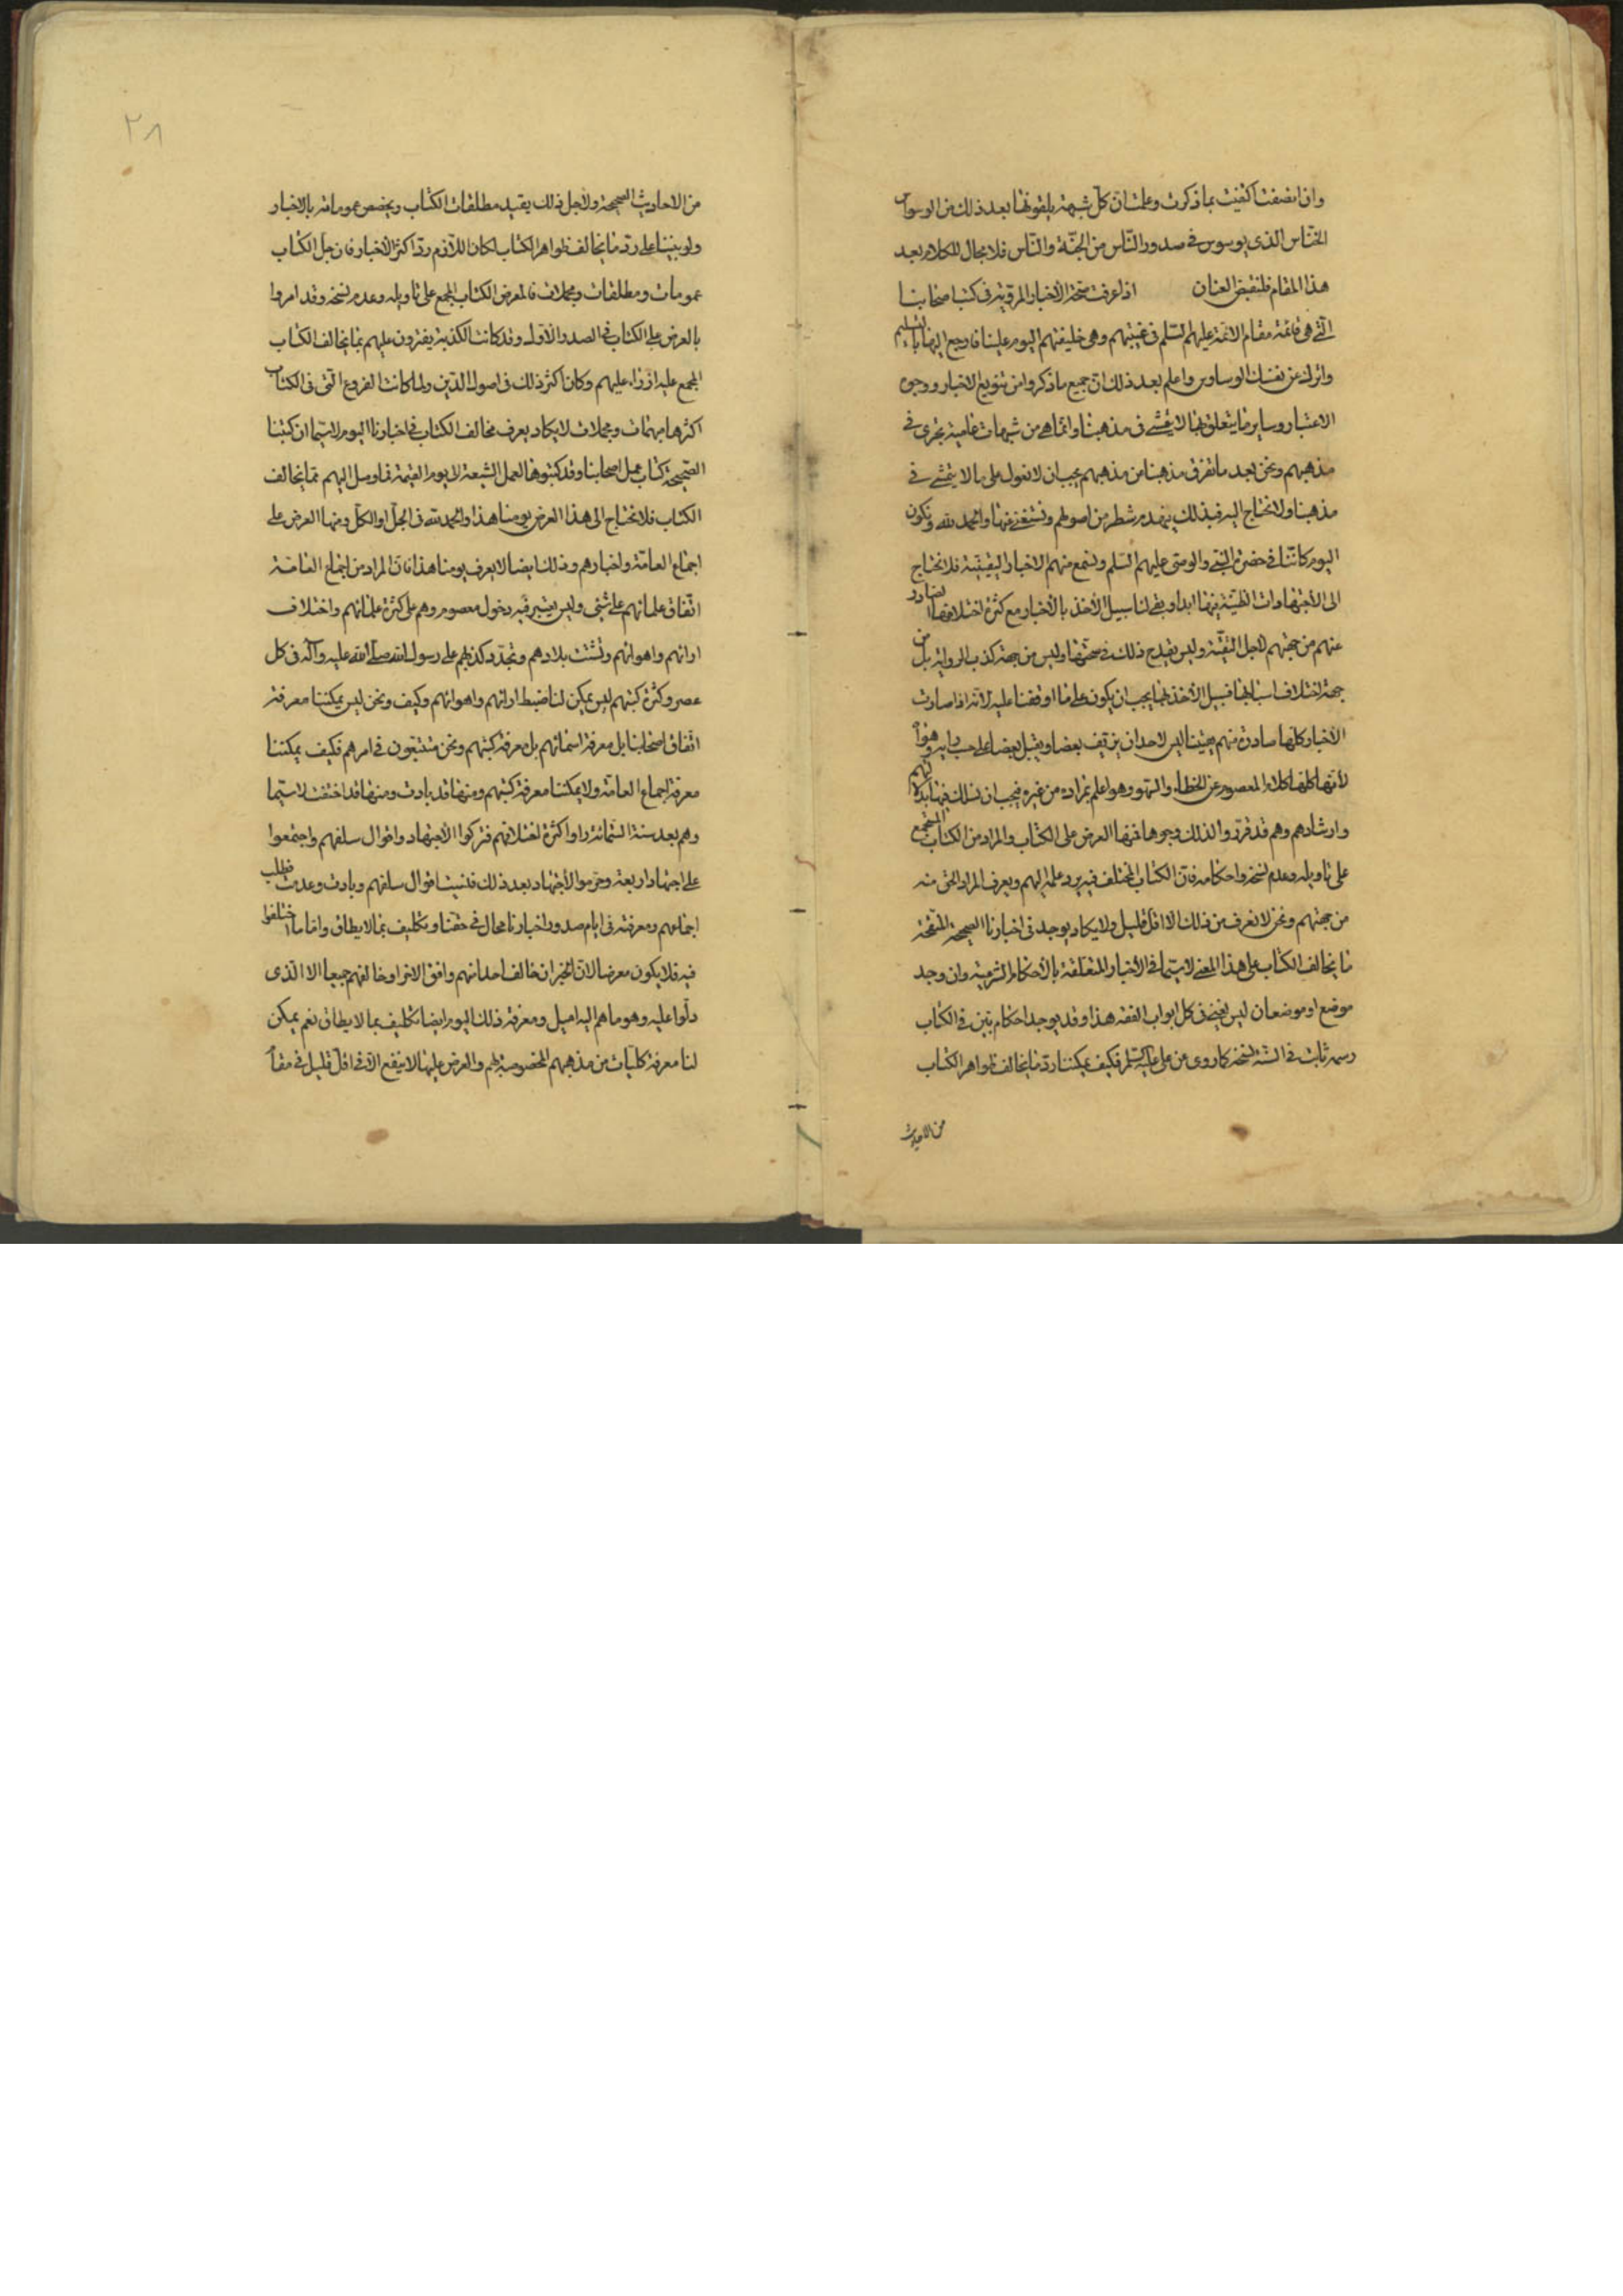 وان انصفت اكتفيت بما ذكرت وعلمت ان كل شبهة يلقونها بعد ذلك من الوسواس
الخناس الذي يوسوس في صدور الناس من الجنة والناس فلا مجال للكلام بعد
هذا المقام فلنقبض العنان اذا عرفت صحة الأخبار المروية في كتب اصحابنا
التي هي قائمة مقام الائمة عليهم السلم في غيبتهم وهي خليفتهم اليوم علينا فارجع اليها بالتسليم
واترك عن نفسك الوساوس واعلم بعد ذلك ان جميع ما ذكروا من تنويع الاخبار ووجوه
الاعتبار وساير ما يتعلق بها لا يتمشى في مذهبنا وانما هي من شبهات عامية تجري في
مذهبهم ونحن بعد ما تفرق مذهبنا من مذهبهم يجب ان لا نعول على ما لا يتمشى في
مذهبنا ولا نحتاج اليه فبذلك ينهدم شطر من اصولهم ونستغني عنها والحمد لله ونكون
اليوم كاننا في حضرة النبي والوصي عليهم السلم ونسمع منهم الاخبار اليقينية فلا نحتاج
الى الاجتهادات الظنية فيها ابدا وبقي لنا سبيل الأخذ بالأخبار مع كثرة اختلافها الصادر
عنهم من جهتهم لاجل التقية وليس يقدح ذلك في صحتها وليس من جهة كذب الرواية بل من
جهة اختلاف اسبابها فسبيل الأخذ بها يجب ان يكون على ما اوقفنا عليه لانه اذا صارت
الأخبار كلها صادرة منهم يقينا ليس لاحد ان يزيف بعضا ويقبل بعضا على حسب رايه وهواه
لأنها كلها كلام المعصوم عن الخطاء والسهو وهو اعلم بمراده من غيره فيجب ان نسلك فيها بدلالتهم
وارشادهم وهم قد قرروا لذلك وجوها فمنها العرض على الكتاب والمراد من الكتاب المجمع
على تاويله وعدم نسخه واحكامه فان الكتاب المختلف فيه يرد علمه اليهم ويعرف المراد الحق منه
من جهتهم ونحن لا نعرف من ذلك الا اقل قليل ولا يكاد يوجد في اخبارنا الصحيحة المنقحة
ما يخالف الكتاب على هذا المعنى لاسيما في الأخبار المتعلقة بالأحكام الشرعية وان وجد
موضع او موضعان ليس يغني في كل ابواب الفقه هذا وقد يوجد احكام بين في الكتاب
رسمه ثابت في السنة نسخه كما روى عن علي عليه السلم فكيف يمكننا رد ما يخالف ظواهر الكتاب
من الاحاديث
٢٨
من الاحاديث الصحيحة ولاجل ذلك يقيد مطلقات الكتاب ويخصص عموماته بالاخبار
ولو بنينا على رد ما يخالف ظواهر الكتاب لكان اللازم رد اكثر الأخبار فان جل الكتاب
عمومات ومطلقات ومجملات فالمعرض الكتاب المجمع على تاويله وعدم نسخه وقد امروا
بالعرض على الكتاب في الصدر الأول وقد كانت الكذبة يفترون عليهم بما يخالف الكتاب
المجمع عليه ازراء عليهم وكان اكثر ذلك في اصول الدين ولما كانت الفروع التي في الكتاب
اكثرها مبهمات ومجملات لا يكاد يعرف مخالف الكتاب في اخبارنا اليوم لاسيما ان كتبنا
الصحيحة كتاب عمل اصحابنا وقد كتبوها لعمل الشيعة الى يوم القيمة فما وصل اليهم مما يخالف
الكتاب فلا نحتاج الى هذا العرض يومنا هذا والحمد لله في الجل او الكل ومنها العرض على
اجماع العامة واخبارهم وذلك ايضا لا يعرف يومنا هذا فان المراد من اجماع العامة
اتفاق علمائهم على شيء وليس يعتبر فيه دخول معصوم وهم على كثرة علمائهم واختلاف
ارائهم واهوائهم وتشتت بلادهم وتجدد كذبهم على رسول الله صلى الله عليه وآله في كل
عصر وكثرة كتبهم ليس يمكن لنا ضبط ارائهم واهوائهم وكيف ونحن ليس يمكننا معرفة
اتفاق اصحابنا بل معرفة اسمائهم بل معرفة كتبهم ونحن متتبعون في امرهم فكيف يمكننا
معرفة اجماع العامة ولا يمكننا معرفة كتبهم ومنها قد بادت ومنها قد اختفت لاسيما
وهم بعد سنة الستمائة راوا كثرة اختلافهم فتركوا الاجتهاد واقوال سلفهم واجتمعوا
على اجتهاد اربعة وحرموا الأجتهاد بعد ذلك فنسيت اقوال سلفهم وبادت وعدمت فطلب
اجماعهم ومعرفته في ايام صدور اخبارنا محال في حقنا وتكليف بما لا يطاق واما ما اختلفوا
فيه فلا يكون معرضا لان الخبر ان خالف احدانهم وافق الاخر او خالفهم جميعا الا الذي
دلوا عليه وهو ما هم اليه اميل ومعرفة ذلك اليوم ايضا تكليف بما لا يطاق نعم يمكن
لنا معرفة كليات من مذهبهم المخصوصة بهم والعرض عليها لا ينفع الا في اقل قليل في مقام